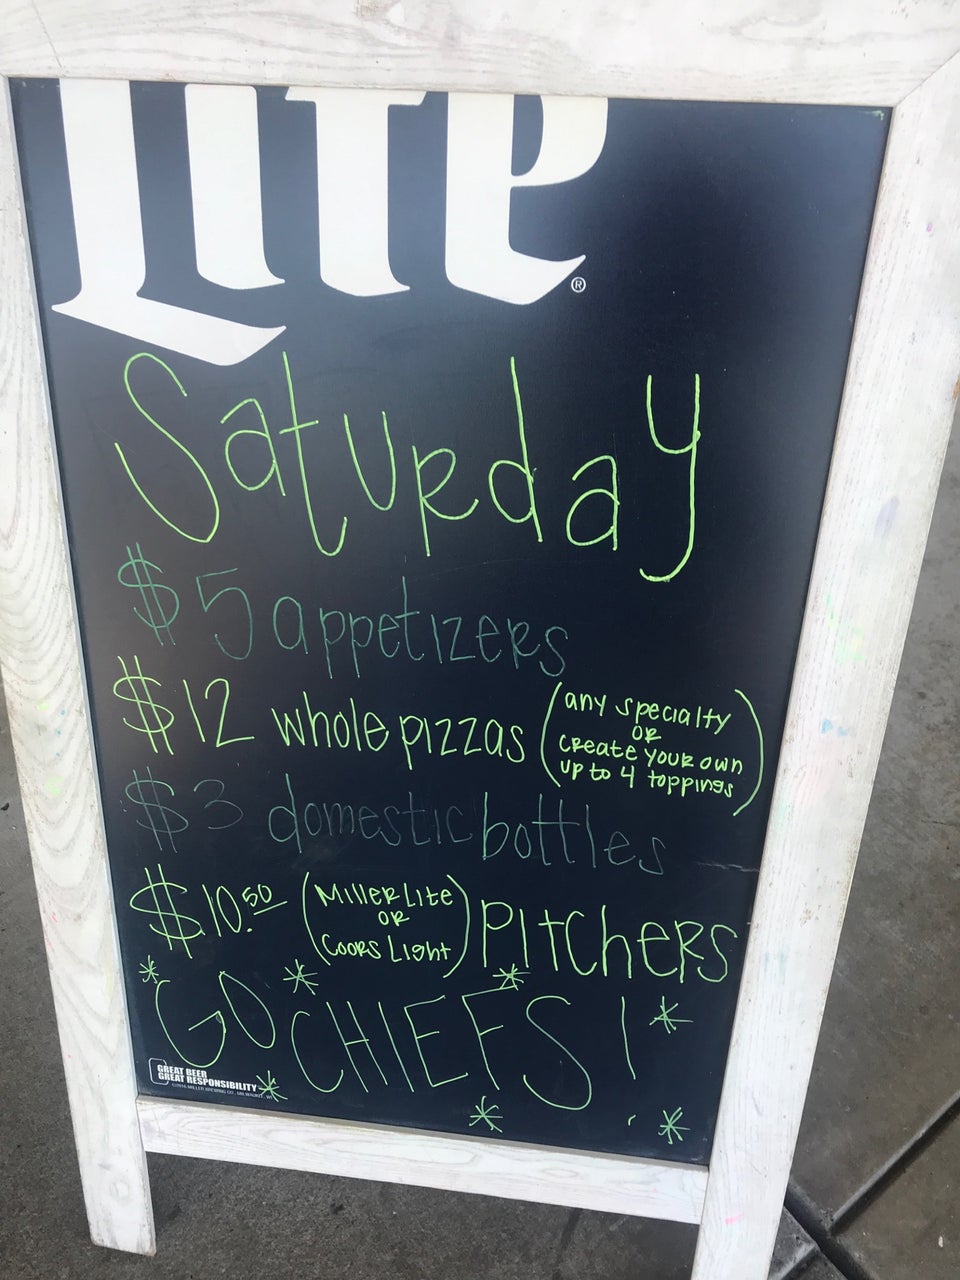 Lite®
Saturday
$5 appetizers
$12 whole pizzas (any specialty
or
create your own
up to 4 toppings)
$3 domestic bottles
$10.50 (Miller Lite
or
Coors Light) Pitchers
GO CHIEFS!
GREAT BEER
GREAT RESPONSIBILITY
©2016 MILLER BREWING CO., MILWAUKEE, WI